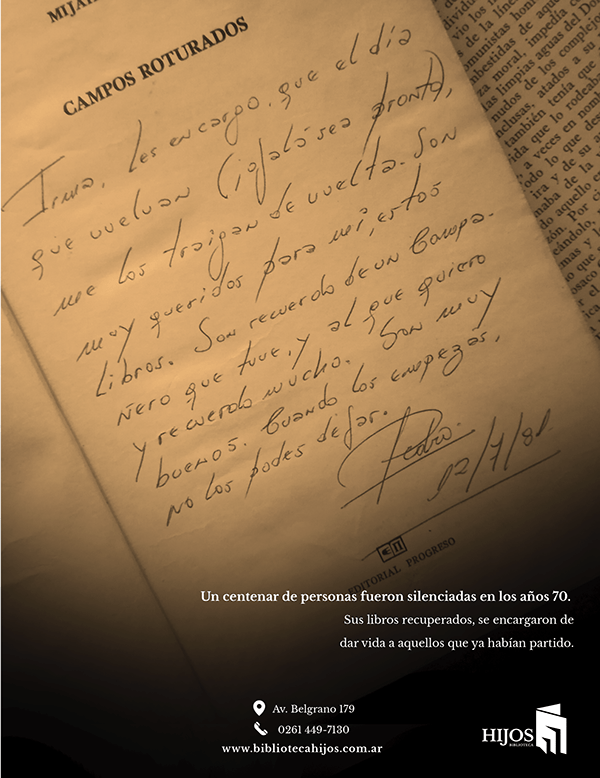 MIJAI
CAMPOS ROTURADOS
Irma, les encargo, que el día
que vuelvan (ojalá sea pronto),
me los traigan de vuelta. Son
muy queridos para mí, estos
libros. Son recuerdo de un Compa-
ñero que tuve, y al que quiero
y recuerdo mucho. Son muy
buenos. Cuando los empezas,
no los podes dejar.
Pedro.
12/7/81.
EDITORIAL PROGRESO
Un centenar de personas fueron silenciadas en los años 70.
Sus libros recuperados, se encargaron de
dar vida a aquellos que ya habían partido.
Av. Belgrano 179
0261 449-7130
www.bibliotecahijos.com.ar
HIJOS
BIBLIOTECA